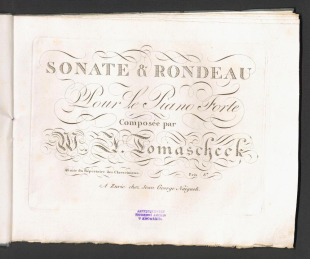 SONATE & RONDEAU
Pour le Piano Forte
Composée par
W. J. Tomascheck.
Œuvre du Répertoire des Clavecinistes
Prix
A Zuric chez Jean George Naigueli